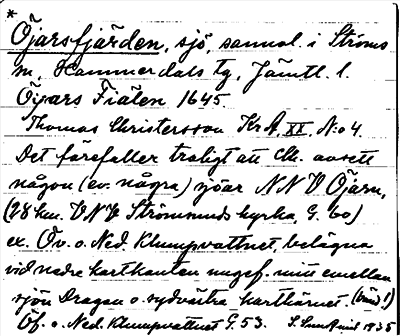 *
Öjarsfjärden, sjö, sannol. i Ströms
sn, Hammerdals tg, Jämtl. l.
Öijars Fiälen 1645.
Thomas Christersson KrA XX N:o 4.
Det förefaller troligt att Chr. avsett
någon (ev. några) sjöar NNV Öjarn,
(28 km. VNV Strömsunds kyrka, G. 60)
ex. Öv. o. Ned. Klumpvattnet, belägna
vid nedre kartkanten ungef. mitt emellan
sjön Dragan o. sydvästra karthörnet. (blad 1)
Öf. o. Ned. Klumpvattnet G. 53. 1935